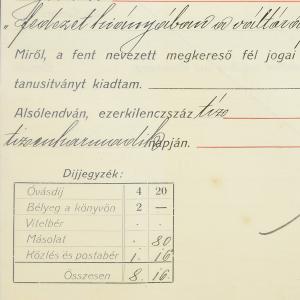 „fedezet hiányában a váltó
Miről, a fent nevezett megkereső fél jogai
tanusitványt kiadtam.
Alsólendván, ezerkilenczszáz tíz
tizenharmadik napján.
Dijjegyzék:
Óvásdij 4 20
Bélyeg a könyvön 2 —
Vitelbér . .
Másolat . 80
Közlés és postabér 1. 16
Összesen 8. 16.